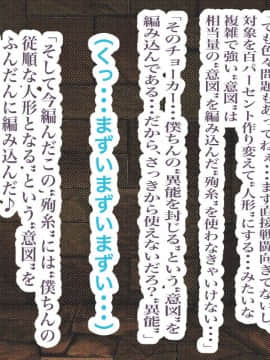 でも色々問題もあってねぇ…まず直接戦闘向きでないし
対象を百パーセント作り変えて〝人形〟にする…みたいな
複雑で強い〝意図〟は
相当量の〝意図〟を編んだ〝殉糸〟を使わなきゃいけない…」
「そのチョーカー!…僕ちんの〝異能を封じる〟という〝意図〟を
編み込んである…だから、さっきから使えないだろう?〝異能〟」
(くっ…まずいまずいまずい…)
「そして今編んだこの〝殉糸〟には〝僕ちんの
従順な人形となる〟という〝意図〟を
ふんだんに編み込んだ♪